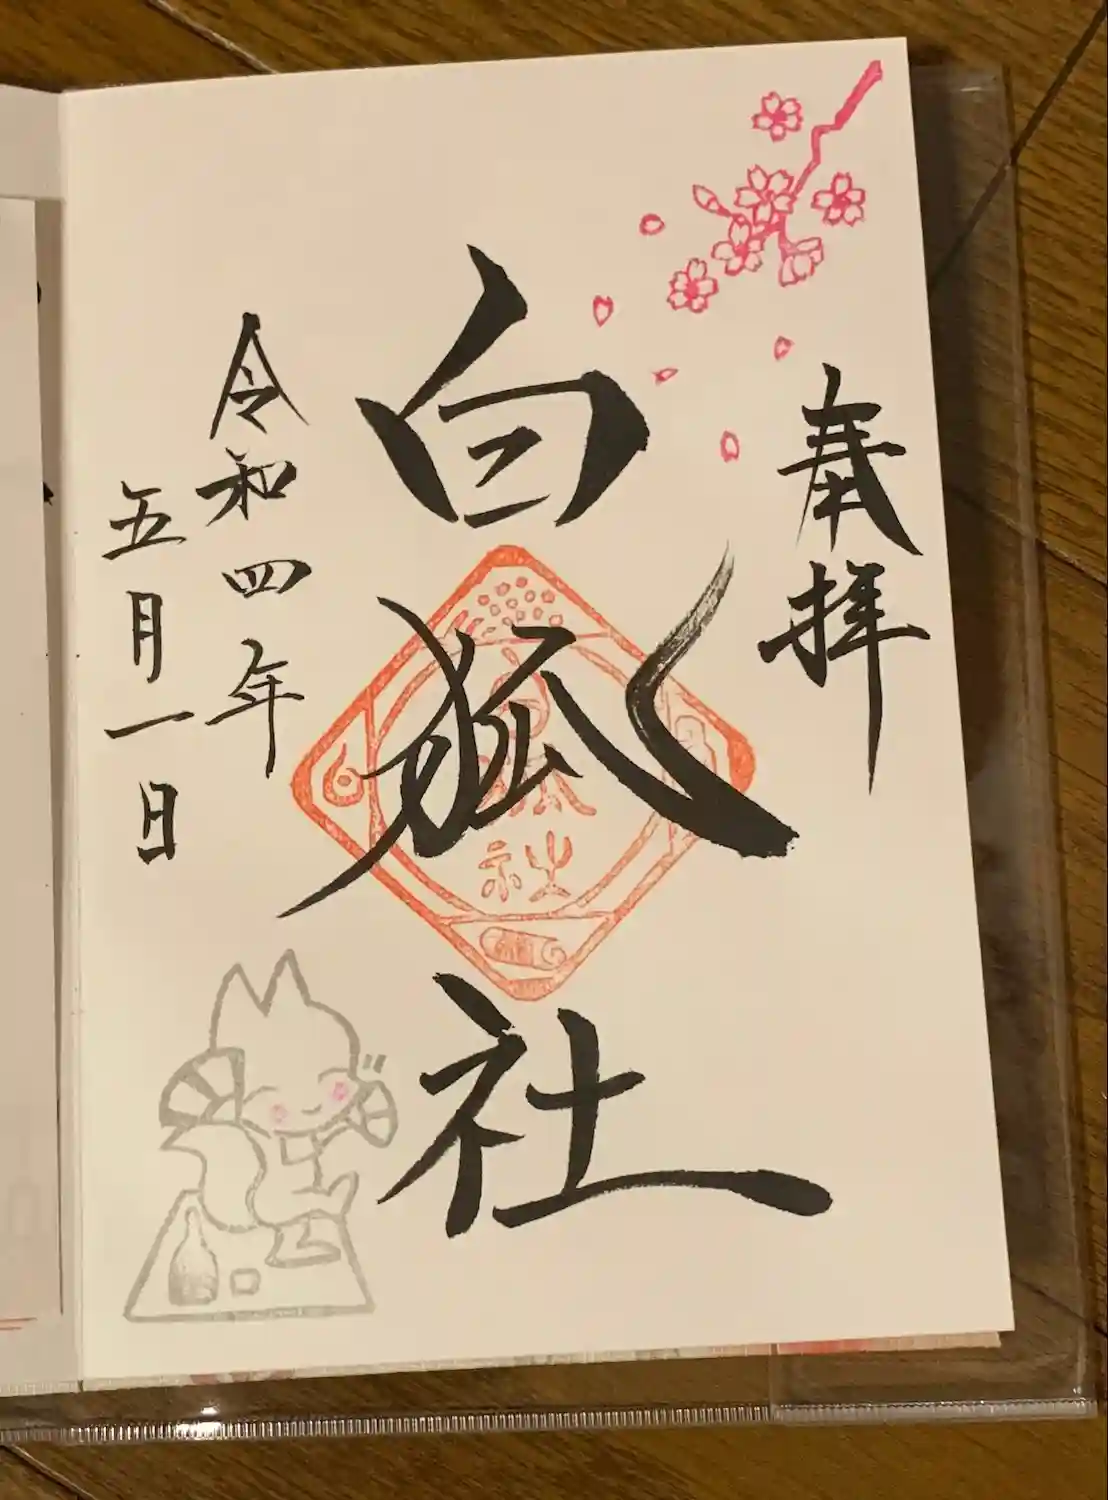 奉拝
白狐社
白狐社
令和四年
五月一日